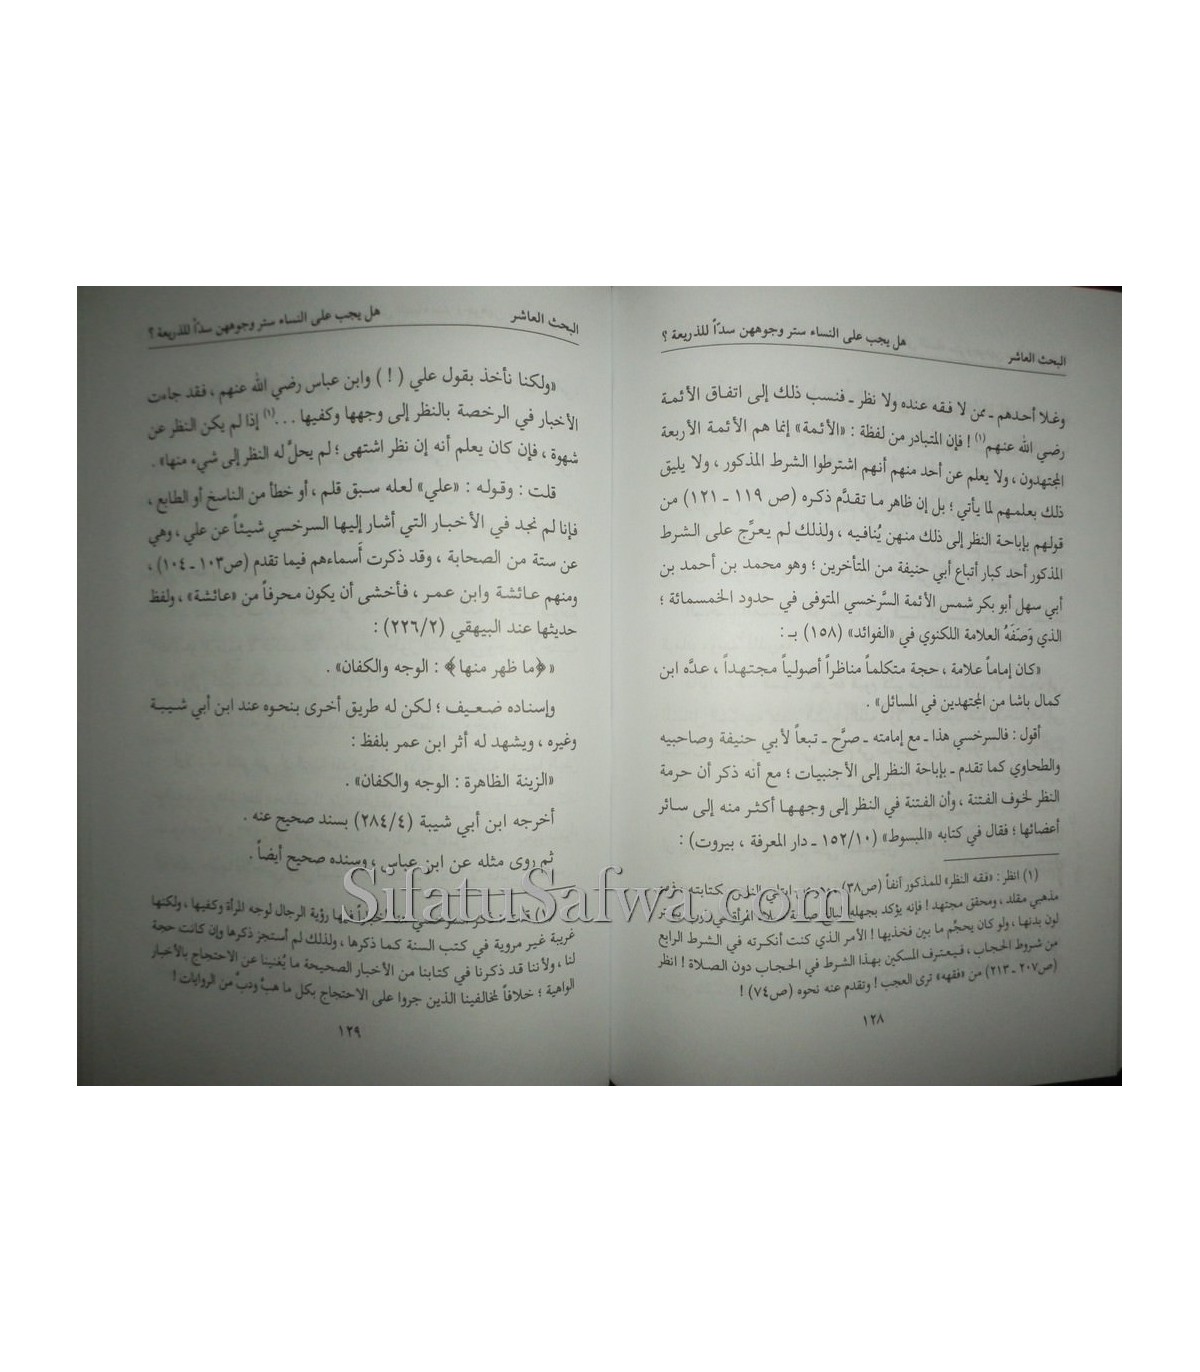 البحث العاشر
هل يجب على النساء ستر وجوههن سدّاً للذريعة ؟
وغلا أحدهم ـ ممن لا فقه عنده ولا نظر ـ فنسب ذلك إلى اتفاق الأئمة
رضي الله عنهم(١) ! فإن المتبادر من لفظة : «الأئمة» إنما هم الأئمة الأربعة
المجتهدون ، ولا يعلم عن أحد منهم أنهم اشترطوا الشرط المذكور ، ولا يليق
ذلك بعلمهم لما يأتي ؛ بل إن ظاهر ما تقدَّم ذكره (ص ١١٩ ـ ١٢١) من
قولهم بإباحة النظر إلى ذلك منهن يُنافيه ، ولذلك لم يعرِّج على الشرط
المذكور أحد كبار أتباع أبي حنيفة من المتأخرين ؛ وهو محمد بن أحمد بن
أبي سهل أبو بكر شمس الأئمة السَّرخسي المتوفى في حدود الخمسمائة ؛
الذي وَصَفَهُ العلامة اللكنوي في «الفوائد» (١٥٨) بـ :
«كان إماماً علامة ، حجة متكلماً مناظراً أصولياً مجتهداً ، عدَّه ابن
كمال باشا من المجتهدين في المسائل» .
أقول : فالسرخسي هذا ـ مع إمامته ـ صرَّح ـ تبعاً لأبي حنيفة وصاحبيه
والطحاوي كما تقدم ـ بإباحة النظر إلى الأجنبيات ؛ مع أنه ذكر أن حرمة
النظر لخوف الفتنة ، وأن الفتنة في النظر إلى وجهها أكثر منه إلى سائر
أعضائها ؛ فقال في كتابه «المبسوط» (١٥٢/١٠ ـ دار المعرفة ، بيروت) :
(١) انظر : «فقه النظر» للمذكور آنفاً (ص٣٨) بكتابته
مذهبي مقلد ، ومحقق مجتهد ! فإنه يؤكد بجهله
لون بدنها ، ولو كان يحجِّم ما بين فخذيها ! الأمر الذي كنت أنكرته في الشرط الرابع
من شروط الحجاب ، فيعترف المسكين بهذا الشرط في الحجاب دون الصلاة ! انظر
(ص٢٠٧ ـ ٢١٣) من «فقهه» ترى العجب ! وتقدم عنه نحوه (ص٧٤) !
١٢٨
البحث العاشر
هل يجب على النساء ستر وجوههن سدّاً للذريعة ؟
«ولكنا نأخذ بقول علي ( ! ) وابن عباس رضي الله عنهم ، فقد جاءت
الأخبار في الرخصة بالنظر إلى وجهها وكفيها . . .(١) إذا لم يكن النظر عن
شهوة ، فإن كان يعلم أنه إن نظر اشتهى ؛ لم يحلَّ له النظر إلى شيء منها» .
قلت : وقوله : «علي» لعله سبق قلم ، أو خطأ من الناسخ أو الطابع ،
فإنا لم نجد في الأخبار التي أشار إليها السرخسي شيئاً عن علي ، وهي
عن ستة من الصحابة ، وقد ذكرت أسماءهم فيما تقدم (ص١٠٣ ـ ١٠٤) ،
ومنهم عائشة وابن عمر ، فأخشى أن يكون محرفاً من «عائشة» ، ولفظ
حديثها عند البيهقي (٢٢٦/٢) :
«﴿ما ظهر منها﴾ : الوجه والكفان» .
وإسناده ضعيف ؛ لكن له طريق أخرى بنحوه عند ابن أبي شيبة
وغيره ، ويشهد له أثر ابن عمر بلفظ :
«الزينة الظاهرة : الوجه والكفان» .
أخرجه ابن أبي شيبة (٢٨٤/٤) بسند صحيح عنه .
ثم روى مثله عن ابن عباس ، وسنده صحيح أيضاً .
(١) فيها رؤية الرجال لوجه المرأة وكفيها ، ولكنها
غريبة غير مروية في كتب السنة كما ذكرها ، ولذلك لم أستجز ذكرها وإن كانت حجة
لنا ، ولأننا قد ذكرنا في كتابنا من الأخبار الصحيحة ما يُغنينا عن الاحتجاج بالأخبار
الواهية ؛ خلافاً لمخالفينا الذين جروا على الاحتجاج بكل ما هبَّ ودبَّ من الروايات !
١٢٩
SifatuSafwa.com